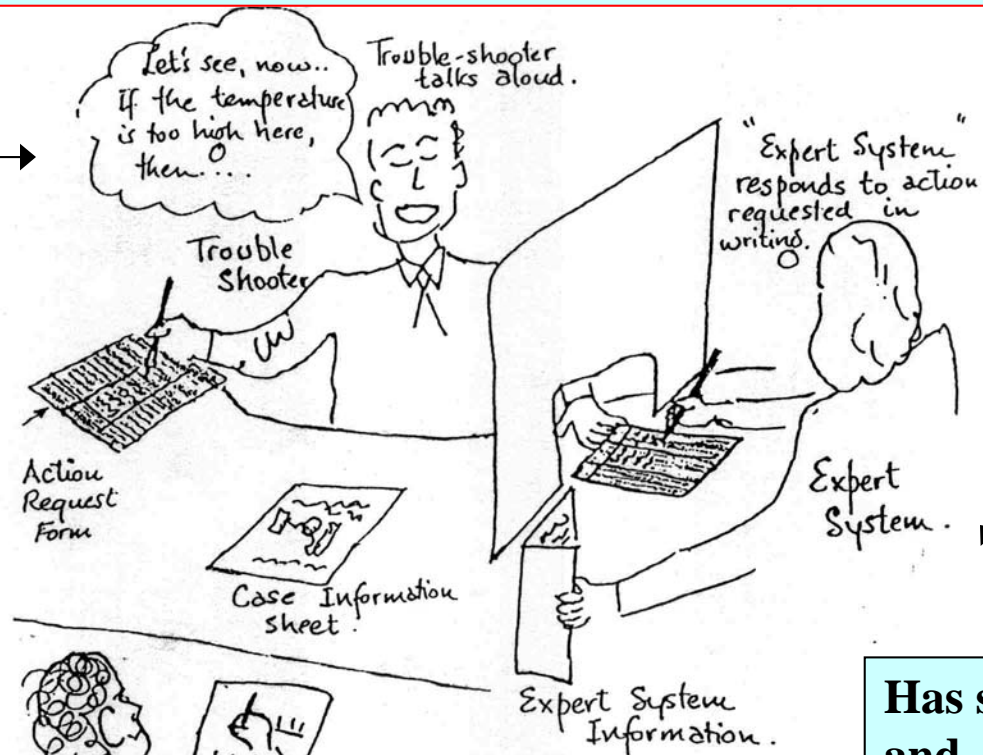 Let's see, now..
If the temperature
is too high here,
then....
Trouble-shooter
talks aloud.
"Expert System"
responds to action
requested in
writing.
Trouble
Shooter
Action
Request
Form
Case Information
sheet.
Expert
System.
Expert System
Information.
Has s
and